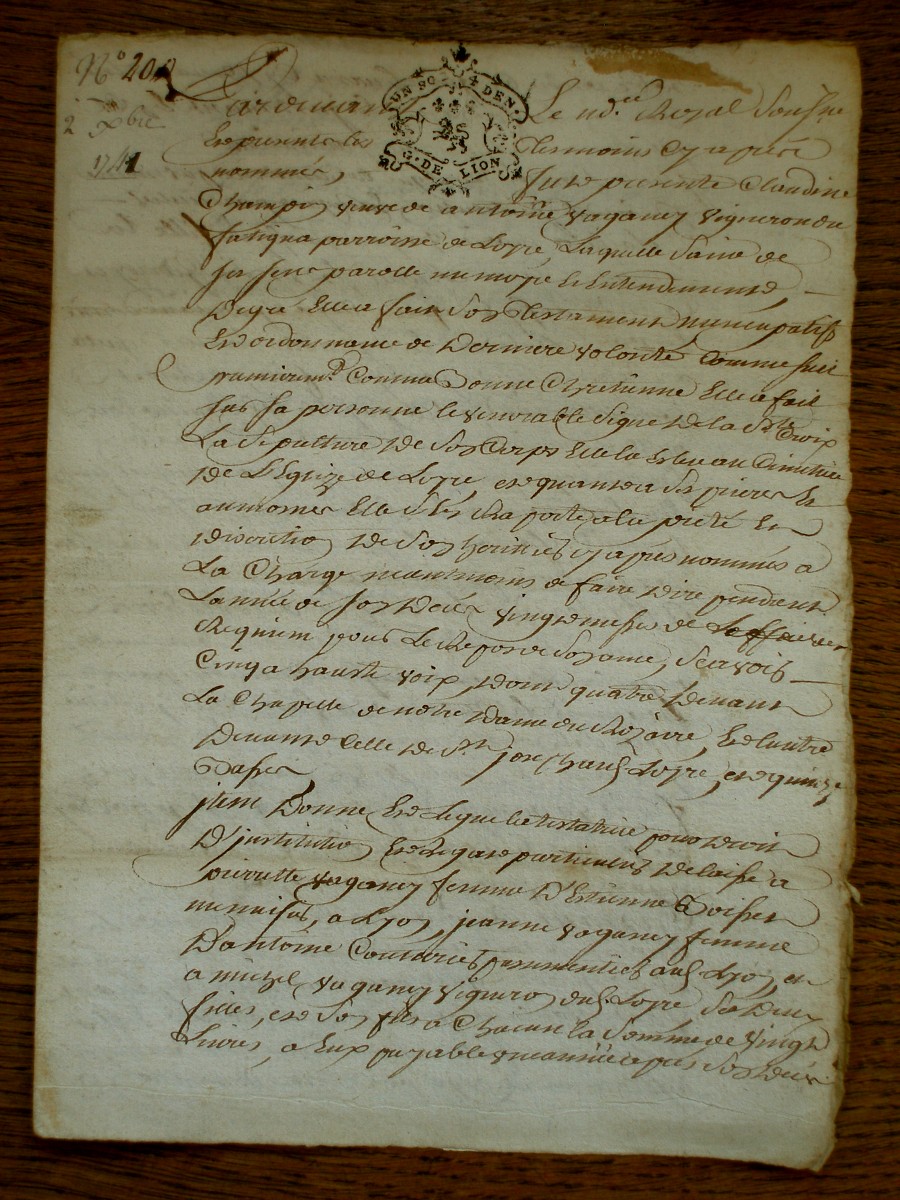 N° 200
2 xbre
1741
UN SO. 4 DEN.
G. DE LION
Pardevant Le no.re Royal Soussigné
Et presents les Temoins cy apres
nommés, fut presente Claudine
Champin veuve de antoine vaganey vigneron du
parroisse de Loyre, Laquelle Saine de
ses sens parolle memoire et Entendement,
De gré Elle a fait Son Testament nuncupatif
Et ordonnance de Derniere volonté Comme suit
premierem.t Comme Bonne Chretienne Elle a fait
sur sa personne le venerable Signe De la Ste Croix
La Sepulture De Son Corps Elle la Eslue au Cimitiere
De L'Eglize de Loyre, et quant a Ses prieres Et
aumones Elle S'en raporte a la pieté Et
Discretion De Son heritier cy apres nommés a
La Charge neantmoins de faire Dire pendant
L'année de son Deces vingt messes de
Requiem pour Le Repos de Son ame, Scavoir
Cinq a haute voix, Dont quatre Devant
La Chapelle de notre Dame du Rozaire, Et l'autre
Devant Celle De St joseph aud. Loyre, et quinze
Basses
jtem Donne Et Legue la testatrice pour Droit
D'jnstitution Et Legat particulier Delaisse a
pierrette vaganey femme D'Estienne
menuisier, a Lyon, jeanne vaganey femme
D'antoine aud. Lyon, et
a michel vaganey vigneron aud. Loyre Ses Deux
filles, et Son fils a Chacun la Somme de vingt
Livres, a Eux payable une année apres Son Deces